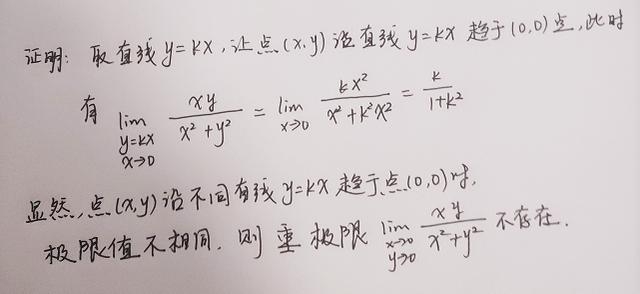 证明: 取直线 y=kx, 让点 (x,y) 沿直线 y=kx 趋于 (0,0) 点, 此时
有 lim_{y=kx, x→0} xy/(x²+y²) = lim_{x→0} kx²/(x²+k²x²) = k/(1+k²)
显然, 点 (x,y) 沿不同直线 y=kx 趋于点 (0,0) 时,
极限值不相同. 则 重极限 lim_{x→0, y→0} xy/(x²+y²) 不存在.